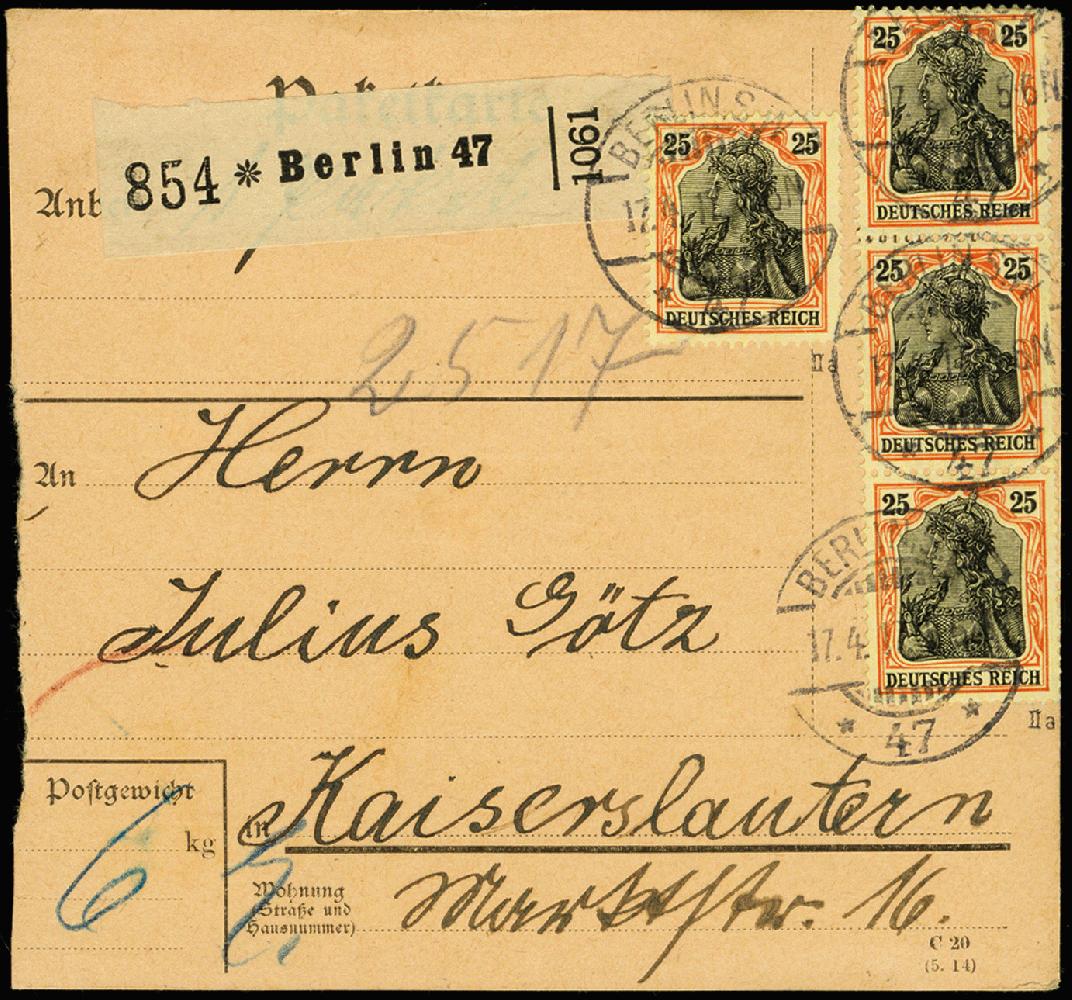 Paketkarte
854 * Berlin 47
1061
Anb
25 25
DEUTSCHES REICH
25 25
DEUTSCHES REICH
25 25
DEUTSCHES REICH
25 25
DEUTSCHES REICH
BERLIN S.W.
47
47
17.4.
* 47 *
IIa
IIa
2517
An Herrn
Julius Götz
Postgewicht
kg
6
in Kaiserslautern
Wohnung
(Straße und
Hausnummer)
Marktstr. 16.
C 20
(5. 14)